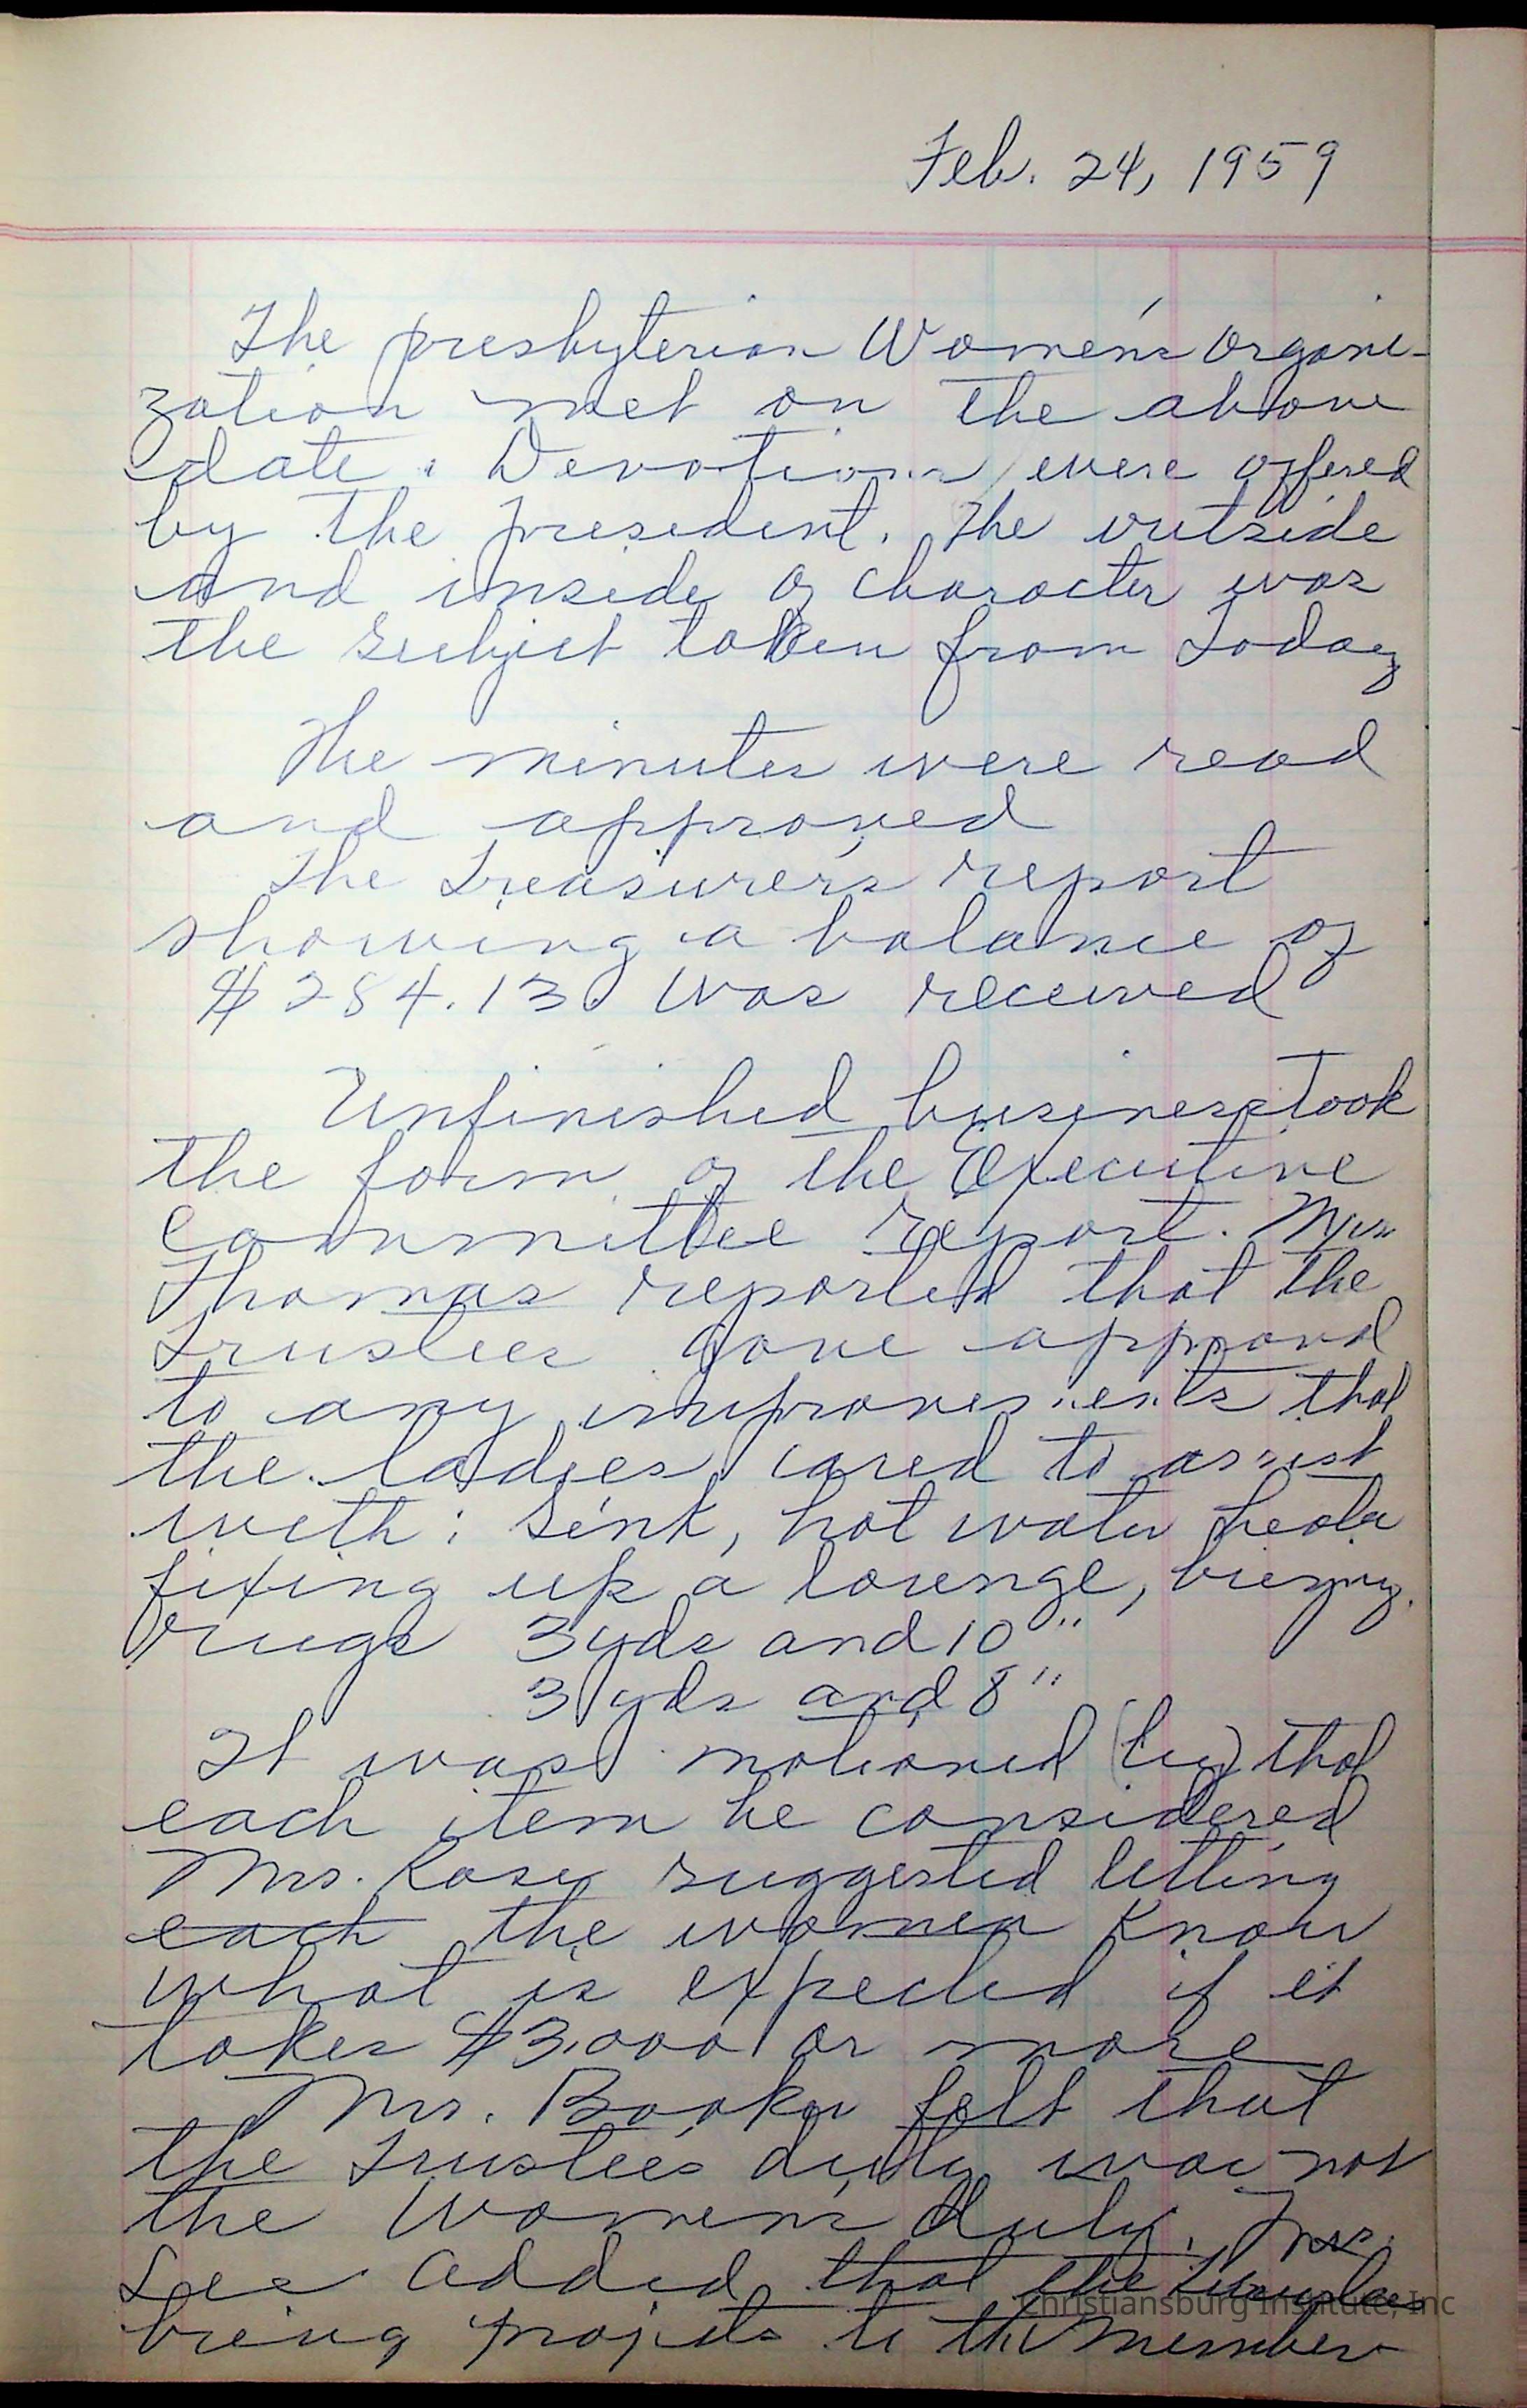 Feb. 24, 1959
The presbyterian Women's organi-
zation met on the above
date. Devotions were offered
by the president. The outside
and inside of character was
the subject taken from Today
The minutes were read
and approved
The Treasurer's report
showing a balance of
$284.13 was received
Unfinished business took
the form of the Executive
Committee report. Mrs.
Thomas reported that the
Trustees gave approval
to any improvements that
the ladies cared to assist
with: Sink, hot water heater
fixing up a lounge, buying
rugs 3 yds and 10"
3 yds and 8"
It was motioned (by) that
each item be considered
Mrs. Rosey suggested letting
each the women know
what is expected if it
takes $3,000 or more
Mrs. Booker felt that
the Trustee's duty was not
the Women's duty. Mrs.
Lee added that the
bring projects to the members
Christiansburg Institute, Inc